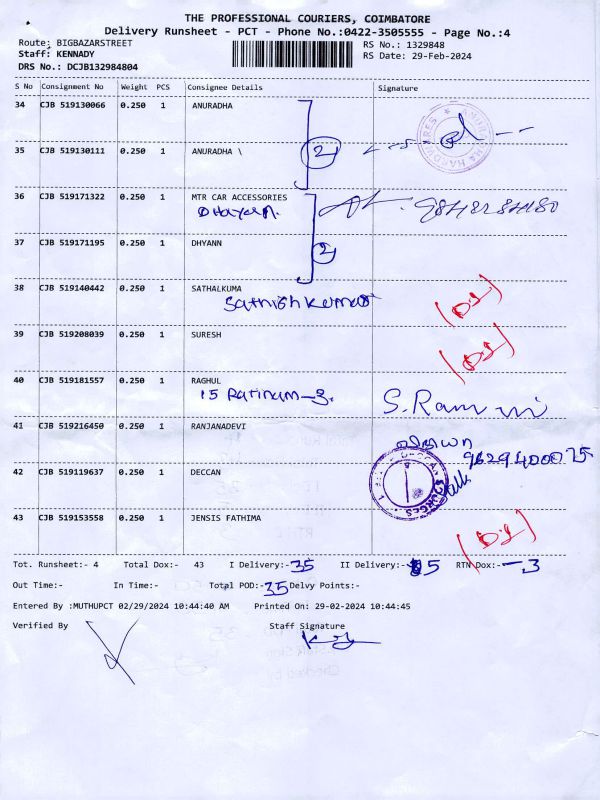 THE PROFESSIONAL COURIERS, COIMBATORE
Delivery Runsheet - PCT - Phone No.:0422-3505555 - Page No.:4
Route: BIGBAZARSTREET
RS No.: 1329848
Staff: KENNADY
RS Date: 29-Feb-2024
DRS No.: DCJB132984804
S No Consignment No Weight PCS Consignee Details Signature
34 CJB 519130066 0.250 1 ANURADHA
35 CJB 519130111 0.250 1 ANURADHA \
2
36 CJB 519171322 0.250 1 MTR CAR ACCESSORIES
37 CJB 519171195 0.250 1 DHYANN
2
38 CJB 519140442 0.250 1 SATHALKUMA
Sathishkumar
39 CJB 519208039 0.250 1 SURESH
40 CJB 519181557 0.250 1 RAGHUL
S.Ram
41 CJB 519216450 0.250 1 RANJANADEVI
42 CJB 519119637 0.250 1 DECCAN
43 CJB 519153558 0.250 1 JENSIS FATHIMA
Tot. Runsheet:- 4 Total Dox:- 43 I Delivery:- 35 II Delivery:- 5 RTN Dox:- 3
Out Time:- In Time:- Total POD:- 35 Delvy Points:-
Entered By :MUTHUPCT 02/29/2024 10:44:40 AM Printed On: 29-02-2024 10:44:45
Verified By Staff Signature